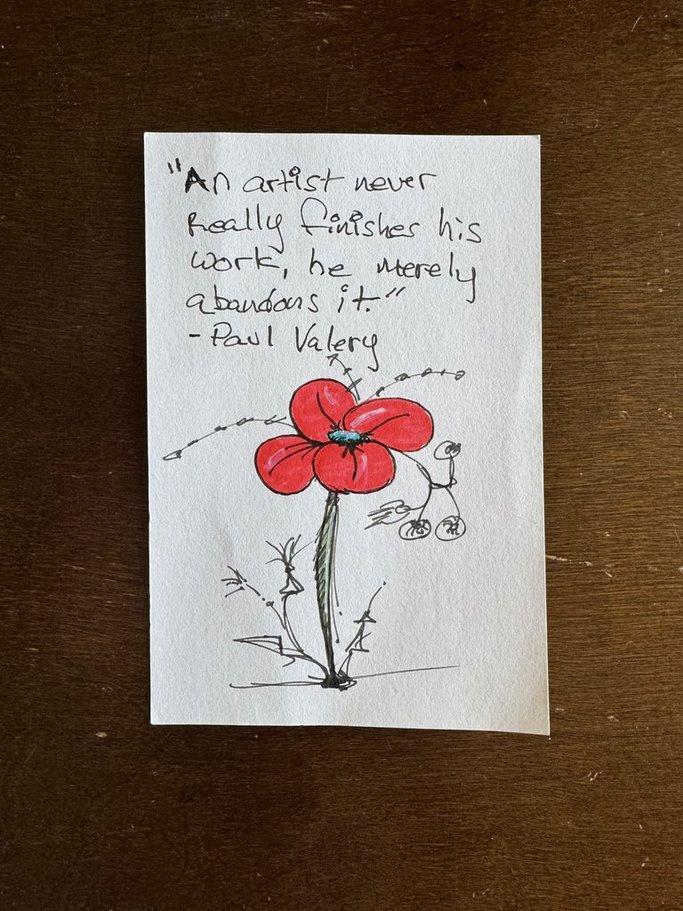 "An artist never
Really finishes his
work, he merely
abandons it."
- Paul Valery